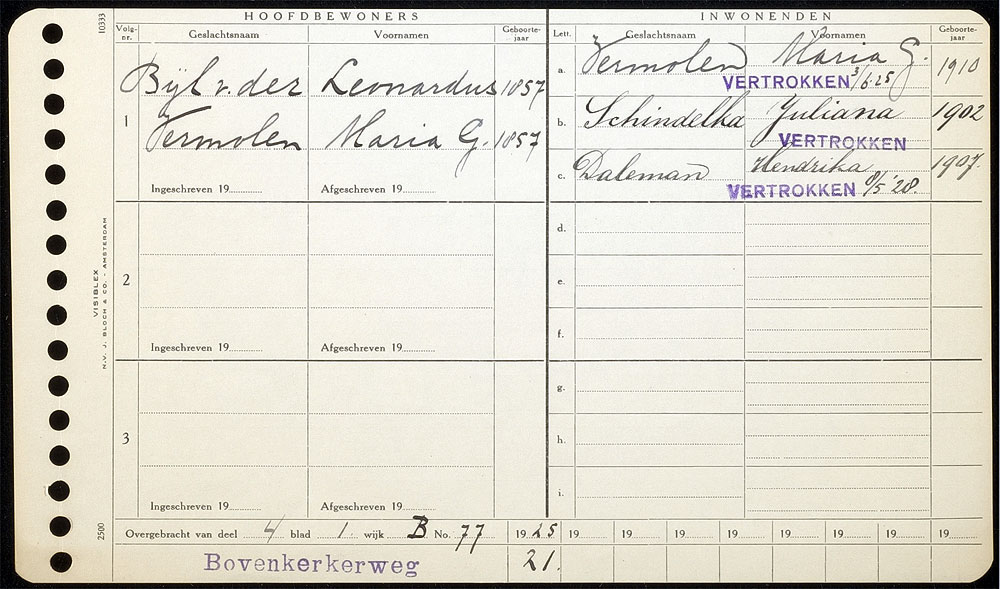 HOOFDBEWONERS
INWONENDEN
10333
Volg-nr.
Geslachtsnaam
Voornamen
Geboorte-jaar
Lett.
Geslachtsnaam
Voornamen
Geboorte-jaar
1
Bijl v. der Leonardus 1857
Vermolen Maria G. 1857
Ingeschreven 19
Afgeschreven 19
a. Vermolen Maria G. 1910
VERTROKKEN 3/6-25
b. Schindelka Juliana 1902
VERTROKKEN
c. Daleman Hendrika 1907.
VERTROKKEN 8/5 '28.
2
Ingeschreven 19
Afgeschreven 19
d.
e.
f.
3
Ingeschreven 19
Afgeschreven 19
g.
h.
i.
VISIBLEX
N.V. J. BLOCH & CO. - AMSTERDAM
2500
Overgebracht van deel 4 blad 1. wijk B No. 77 1925 19 19 19 19 19 19 19 19
Bovenkerkerweg 21.